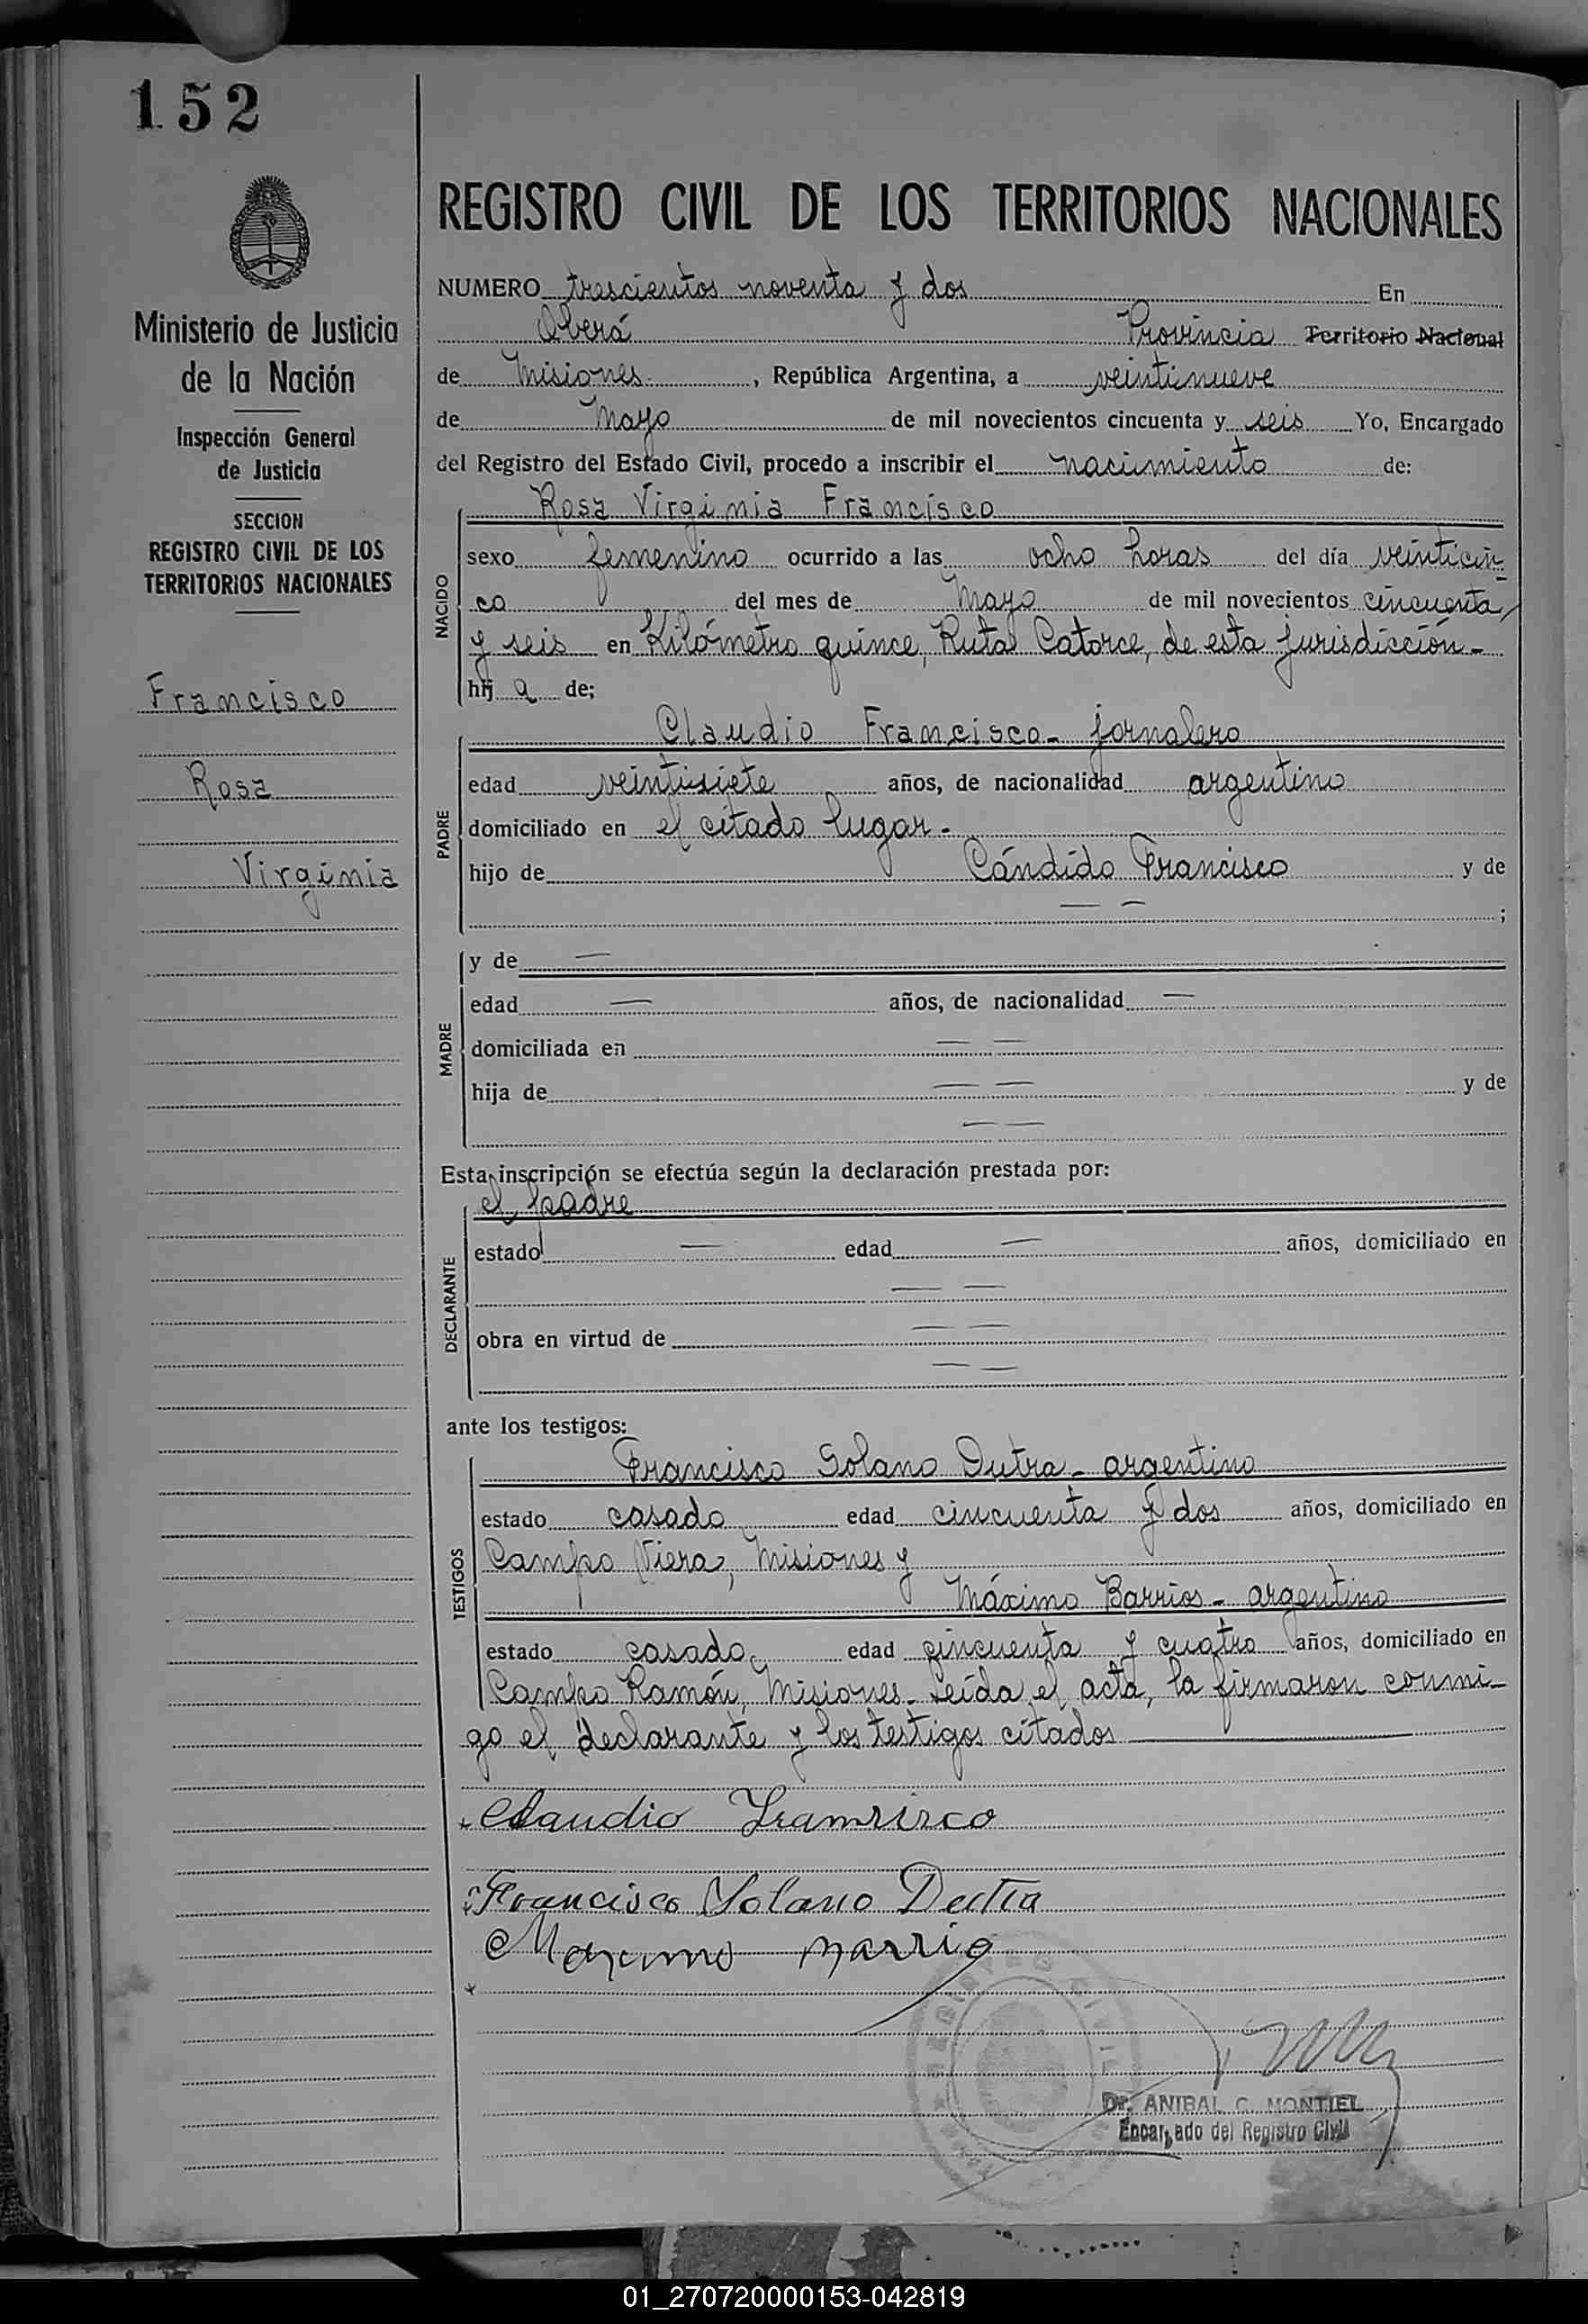 152
Ministerio de Justicia
de la Nación
Inspección General
de Justicia
SECCION
REGISTRO CIVIL DE LOS
TERRITORIOS NACIONALES
Francisco
Rosa
Virginia
REGISTRO CIVIL DE LOS TERRITORIOS NACIONALES
NUMERO trescientos noventa y dos En
Oberá Provincia Territorio Nacional
de Misiones , República Argentina, a veintinueve
de Mayo de mil novecientos cincuenta y seis Yo, Encargado
del Registro del Estado Civil, procedo a inscribir el nacimiento de:
NACIDO
Rosa Virginia Francisco
sexo femenino ocurrido a las ocho horas del día veinticin-
co del mes de Mayo de mil novecientos cincuenta
y seis en Kilómetro quince, Ruta Catorce, de esta jurisdicción-
hij a de;
PADRE
Claudio Francisco- jornalero
edad veintisiete años, de nacionalidad argentino
domiciliado en el citado lugar-
hijo de Cándido Francisco y de
— — ;
MADRE
y de —
edad — años, de nacionalidad —
domiciliada en — —
hija de — — y de
— —
Esta inscripción se efectúa según la declaración prestada por:
DECLARANTE
el padre
estado — edad — años, domiciliado en
— —
obra en virtud de — —
— —
ante los testigos:
TESTIGOS
Francisco Solano Dutra- argentino
estado casado edad cincuenta y dos años, domiciliado en
Campo Viera, Misiones y
Máximo Barrios- argentino
estado casado edad cincuenta y cuatro años, domiciliado en
Campo Ramón, Misiones- Leída el acta, la firmaron conmi-
go el declarante y los testigos citados
Claudio Framsisco
Francisco Solano Dutra
Maximo Barrio
REGISTRO CIVIL
Dr. ANIBAL C. MONTIEL
Encargado del Registro Civil
01_270720000153-042819